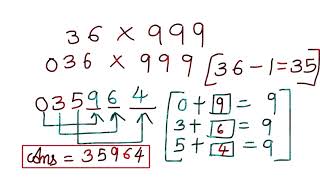 36 × 999
036 × 999 [36-1=35]
035964
0 + 9 = 9
3 + 6 = 9
5 + 4 = 9
Ans = 35964